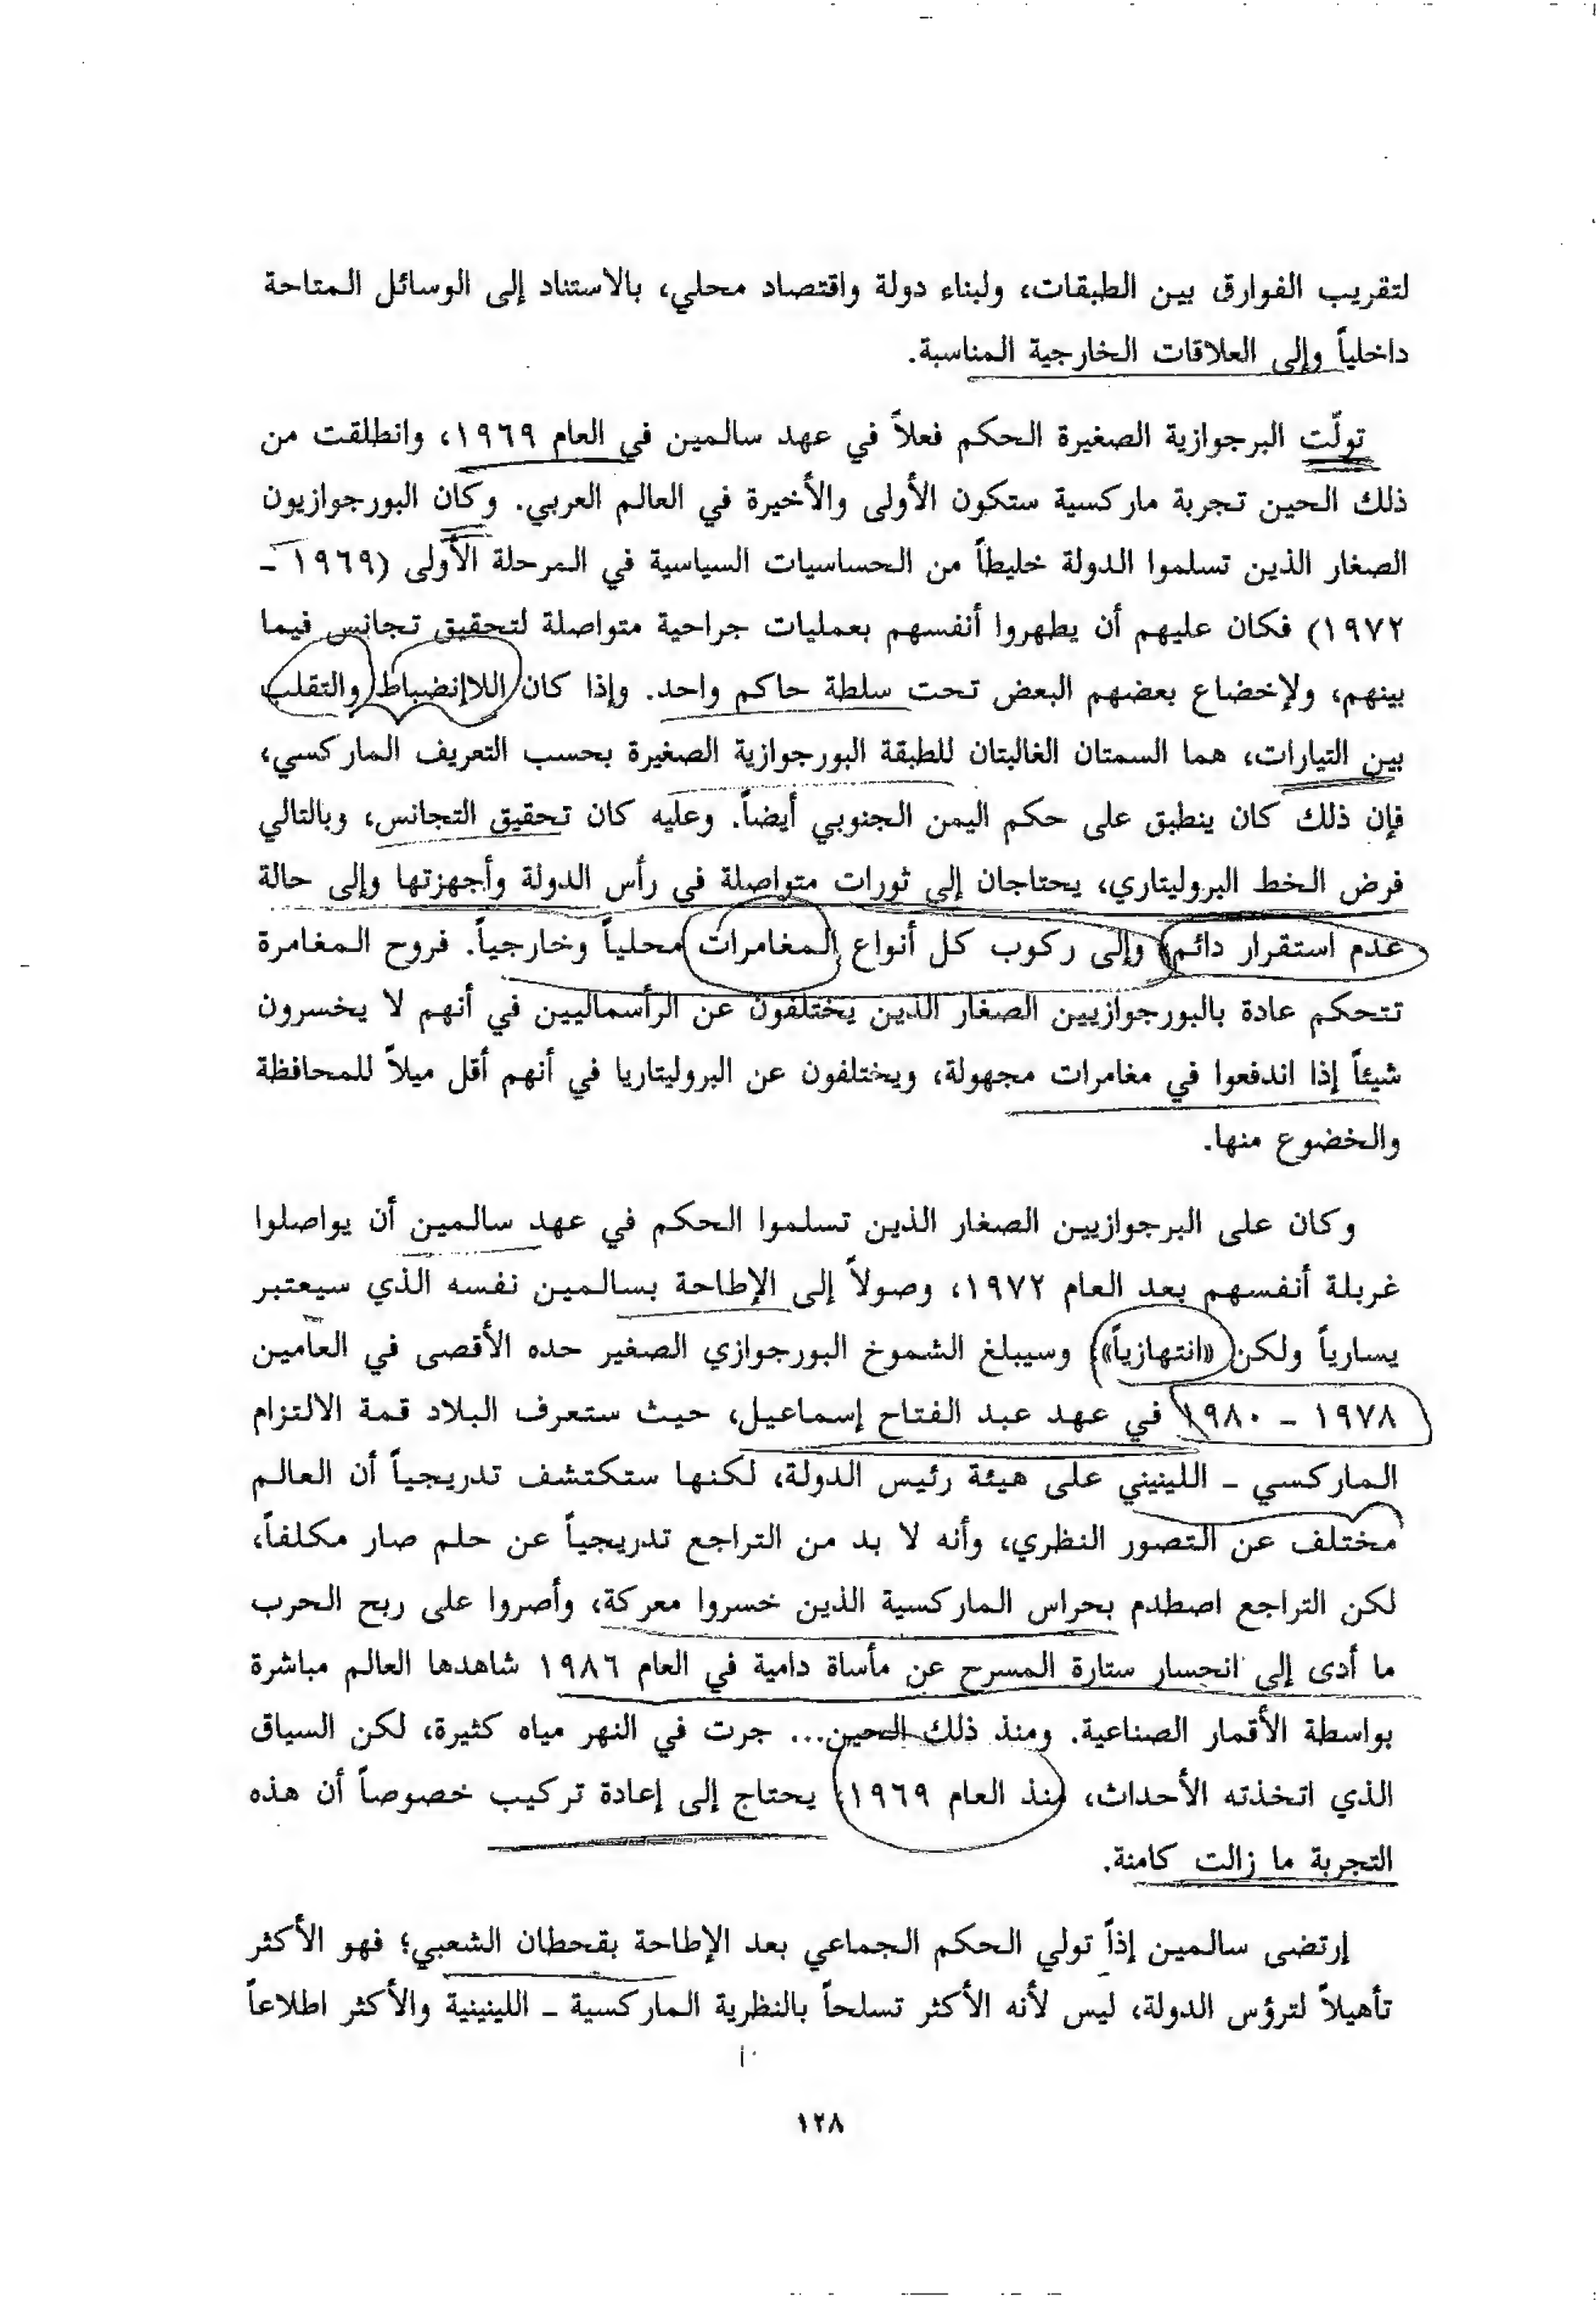 لتقريب الفوارق بين الطبقات، ولبناء دولة واقتصاد محلي، بالاستناد إلى الوسائل المتاحة
داخلياً وإلى العلاقات الخارجية المناسبة.
تولّت البرجوازية الصغيرة الحكم فعلاً في عهد سالمين في العام ١٩٦٩، وانطلقت من
ذلك الحين تجربة ماركسية ستكون الأولى والأخيرة في العالم العربي. وكان البورجوازيون
الصغار الذين تسلموا الدولة خليطاً من الحساسيات السياسية في المرحلة الأولى (١٩٦٩ ـ
١٩٧٢) فكان عليهم أن يطهروا أنفسهم بعمليات جراحية متواصلة لتحقيق تجانس فيما
بينهم، ولإخضاع بعضهم البعض تحت سلطة حاكم واحد. وإذا كان اللاإنضباط والتقلب
بين التيارات، هما السمتان الغالبتان للطبقة البورجوازية الصغيرة بحسب التعريف الماركسي،
فإن ذلك كان ينطبق على حكم اليمن الجنوبي أيضاً. وعليه كان تحقيق التجانس، وبالتالي
فرض الخط البروليتاري، يحتاجان إلى ثورات متواصلة في رأس الدولة وأجهزتها وإلى حالة
عدم استقرار دائم، وإلى ركوب كل أنواع المغامرات محلياً وخارجياً. فروح المغامرة
تتحكم عادة بالبورجوازيين الصغار الذين يختلفون عن الرأسماليين في أنهم لا يخسرون
شيئاً إذا اندفعوا في مغامرات مجهولة، ويختلفون عن البروليتاريا في أنهم أقل ميلاً للمحافظة
والخضوع منها.
وكان على البرجوازيين الصغار الذين تسلموا الحكم في عهد سالمين أن يواصلوا
غربلة أنفسهم بعد العام ١٩٧٢، وصولاً إلى الإطاحة بسالمين نفسه الذي سيعتبر
يسارياً ولكن «انتهازياً»، وسيبلغ الشموخ البورجوازي الصغير حده الأقصى في العامين
١٩٧٨ ـ ١٩٨٠ في عهد عبد الفتاح إسماعيل، حيث ستعرف البلاد قمة الالتزام
الماركسي ـ اللينيني على هيئة رئيس الدولة، لكنها ستكتشف تدريجياً أن العالم
مختلف عن التصور النظري، وأنه لا بد من التراجع تدريجياً عن حلم صار مكلفاً،
لكن التراجع اصطدم بحراس الماركسية الذين خسروا معركة، وأصروا على ربح الحرب
ما أدى إلى انحسار ستارة المسرح عن مأساة دامية في العام ١٩٨٦ شاهدها العالم مباشرة
بواسطة الأقمار الصناعية. ومنذ ذلك الحين... جرت في النهر مياه كثيرة، لكن السياق
الذي اتخذته الأحداث، منذ العام ١٩٦٩، يحتاج إلى إعادة تركيب خصوصاً أن هذه
التجربة ما زالت كامنة.
إرتضى سالمين إذاً تولي الحكم الجماعي بعد الإطاحة بقحطان الشعبي؛ فهو الأكثر
تأهيلاً لترؤس الدولة، ليس لأنه الأكثر تسلحاً بالنظرية الماركسية ـ اللينينية والأكثر اطلاعاً
١٢٨